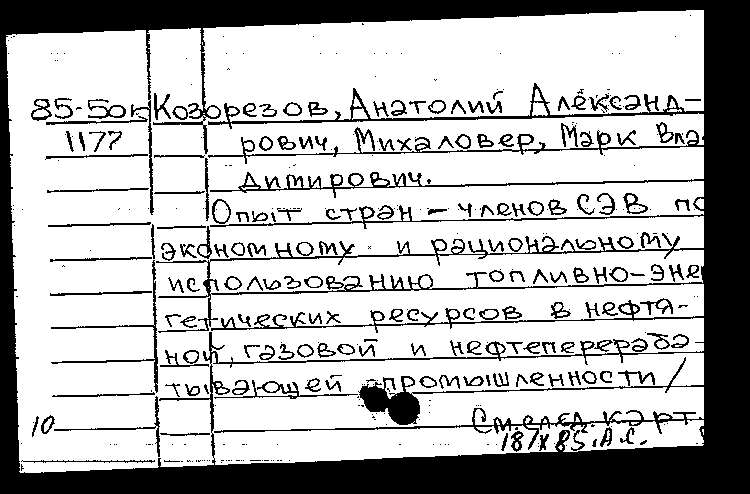 85-5ок Козорезов, Анатолий Александ-
1177 рович, Михаловер, Марк Вла-
димирович.
Опыт стран - членов СЭВ по
экономному и рациональному
использованию топливно-энер
гетических ресурсов в нефтя-
ной, газовой и нефтеперераба-
тывающей промышленности/
10 См.след.карт.
18/X 85. А.С.